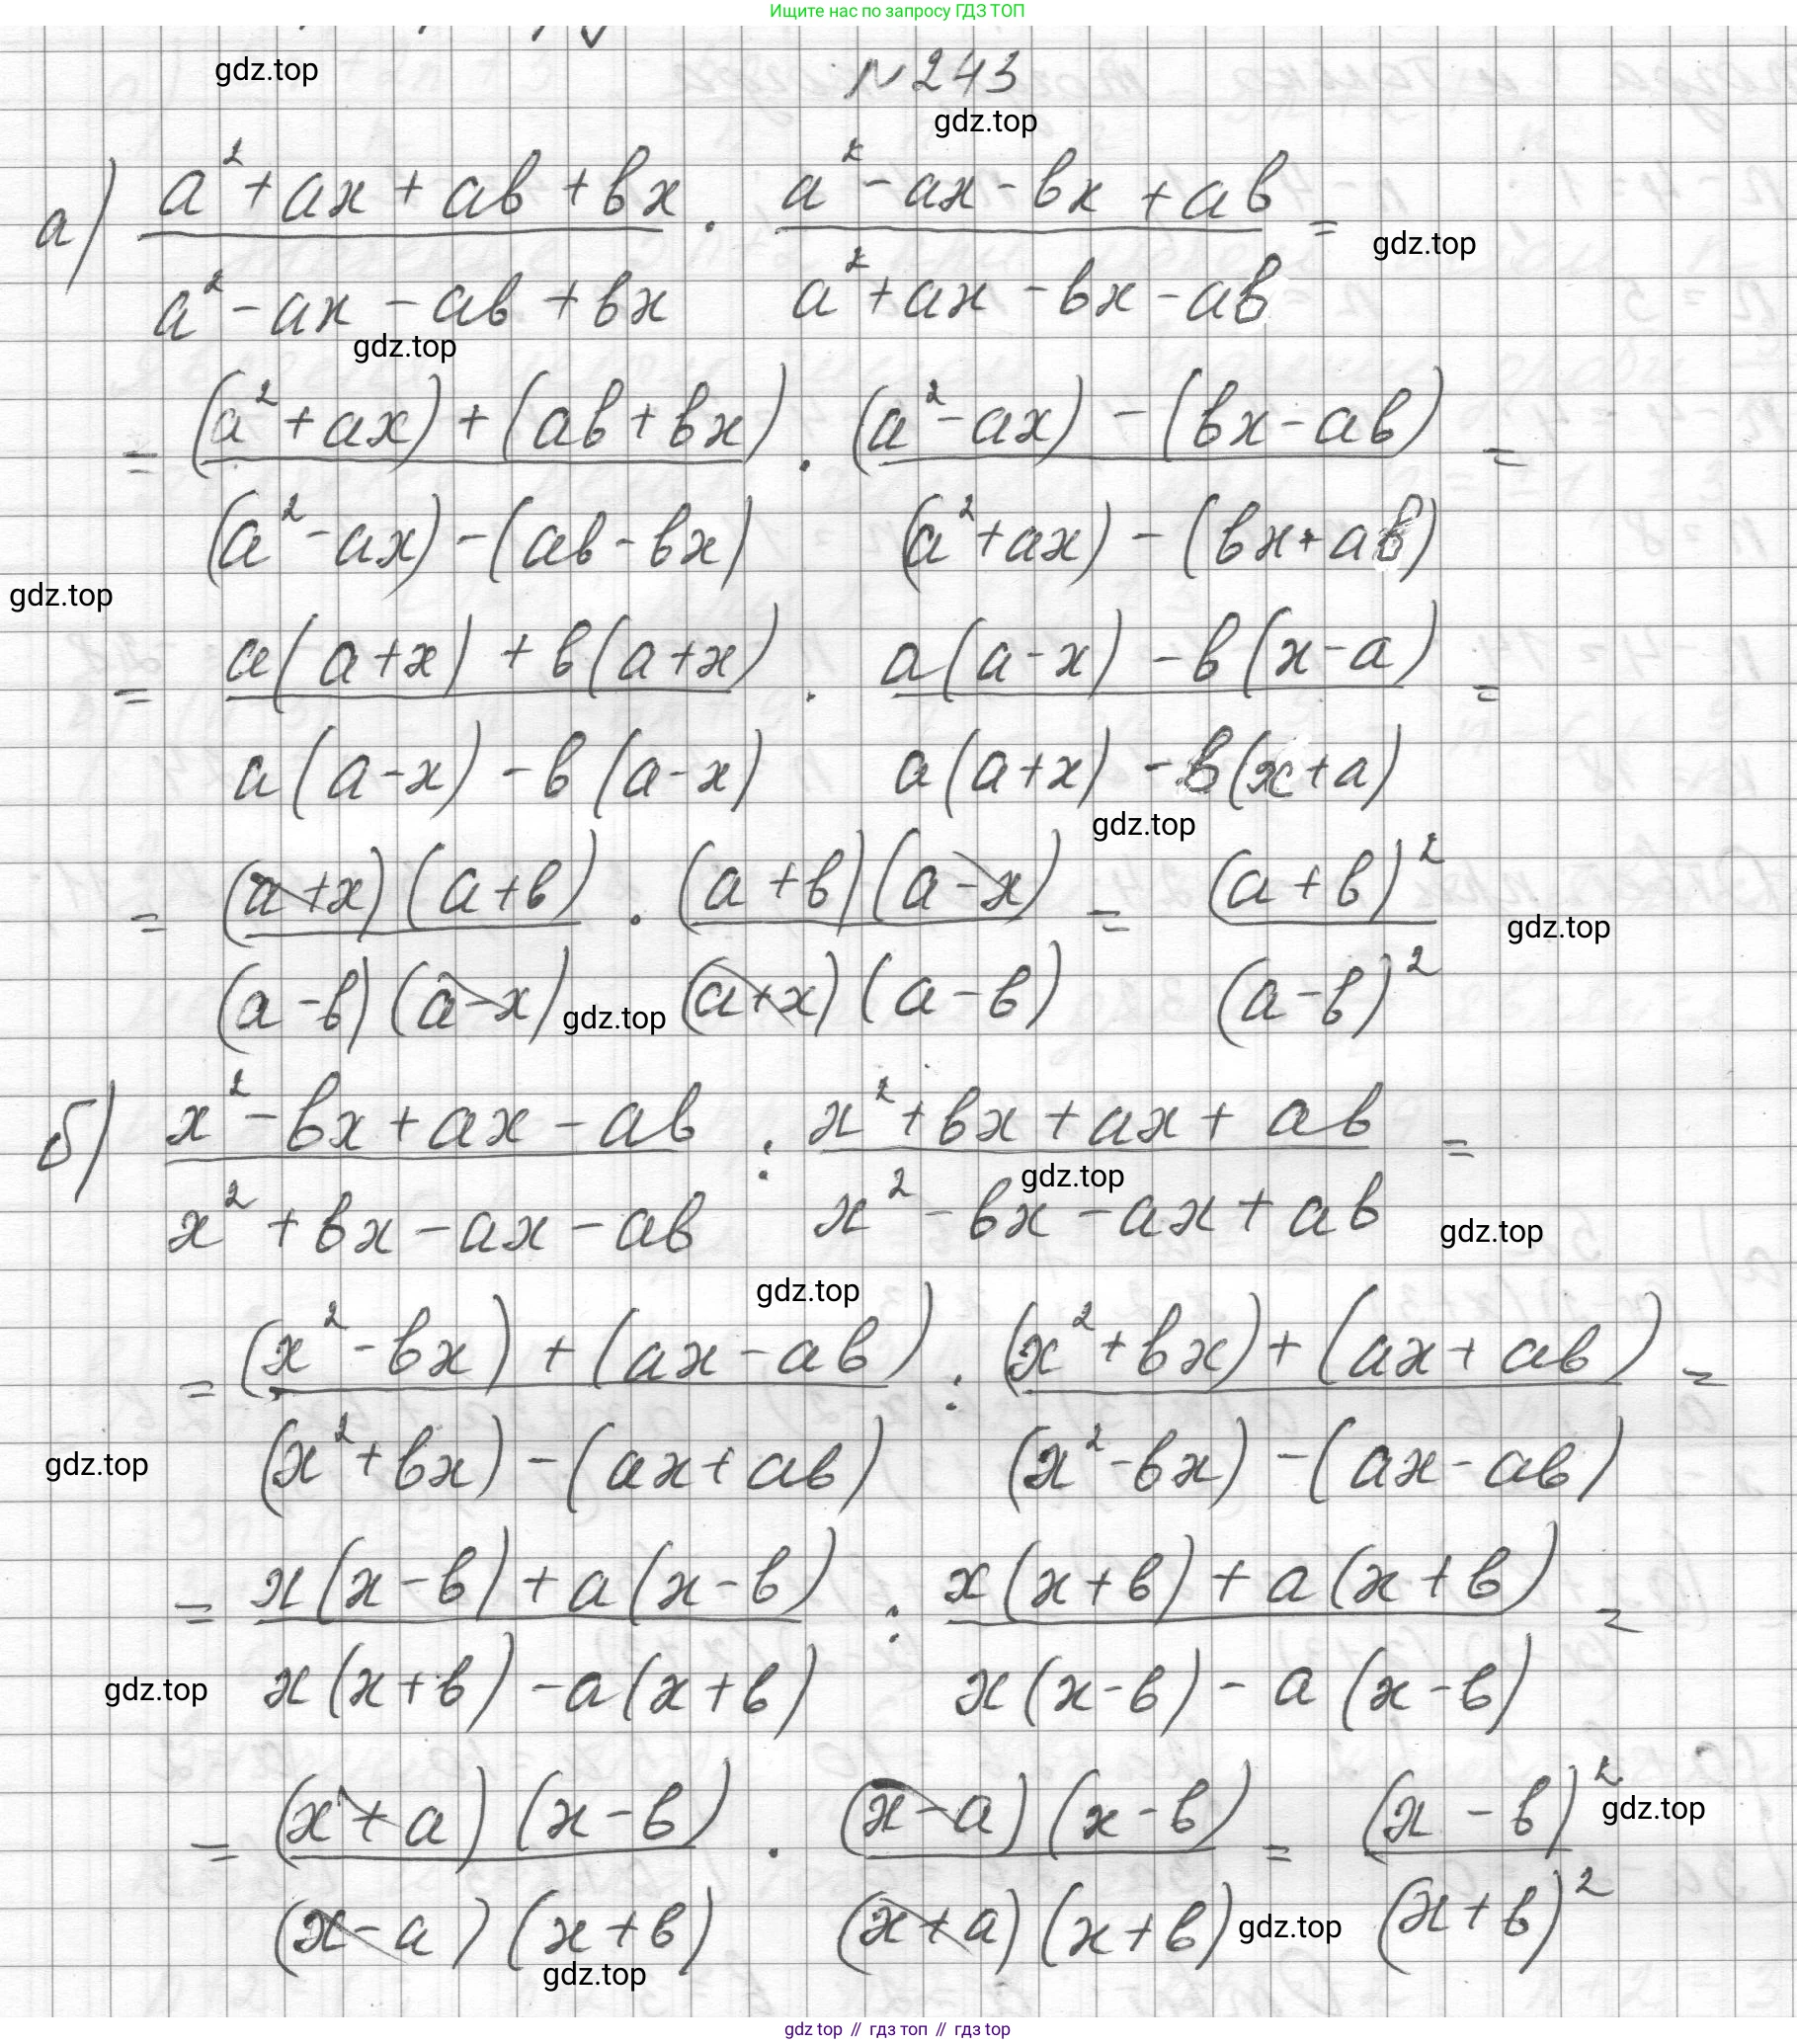 Ищите нас по запросу ГДЗ ТОП
gdz.top
№243
gdz.top
а) (a² + ax + ab + bx)/(a² - ax - ab + bx) · (a² - ax - bx + ab)/(a² + ax - bx - ab) =
gdz.top
gdz.top
= ((a² + ax) + (ab + bx))/((a² - ax) - (ab - bx)) · ((a² - ax) - (bx - ab))/((a² + ax) - (bx + ab)) =
gdz.top
= (a(a+x) + b(a+x))/(a(a-x) - b(a-x)) · (a(a-x) - b(x-a))/(a(a+x) - b(x+a)) =
gdz.top
= ((a+x)(a+b))/((a-b)(a-x)) · ((a+b)(a-x))/((a+x)(a-b)) = (a+b)²/(a-b)²
gdz.top
gdz.top
б) (x² - bx + ax - ab)/(x² + bx - ax - ab) : (x² + bx + ax + ab)/(x² - bx - ax + ab) =
gdz.top
gdz.top
gdz.top
= ((x² - bx) + (ax - ab))/((x² + bx) - (ax + ab)) : ((x² + bx) + (ax + ab))/((x² - bx) - (ax - ab)) =
gdz.top
= (x(x-b) + a(x-b))/(x(x+b) - a(x+b)) : (x(x+b) + a(x+b))/(x(x-b) - a(x-b)) =
gdz.top
= ((x+a)(x-b))/((x-a)(x+b)) · ((x-a)(x-b))/((x+a)(x+b)) = (x-b)²/(x+b)²
gdz.top
gdz.top
gdz.top
gdz top // гдз топ // гдз top